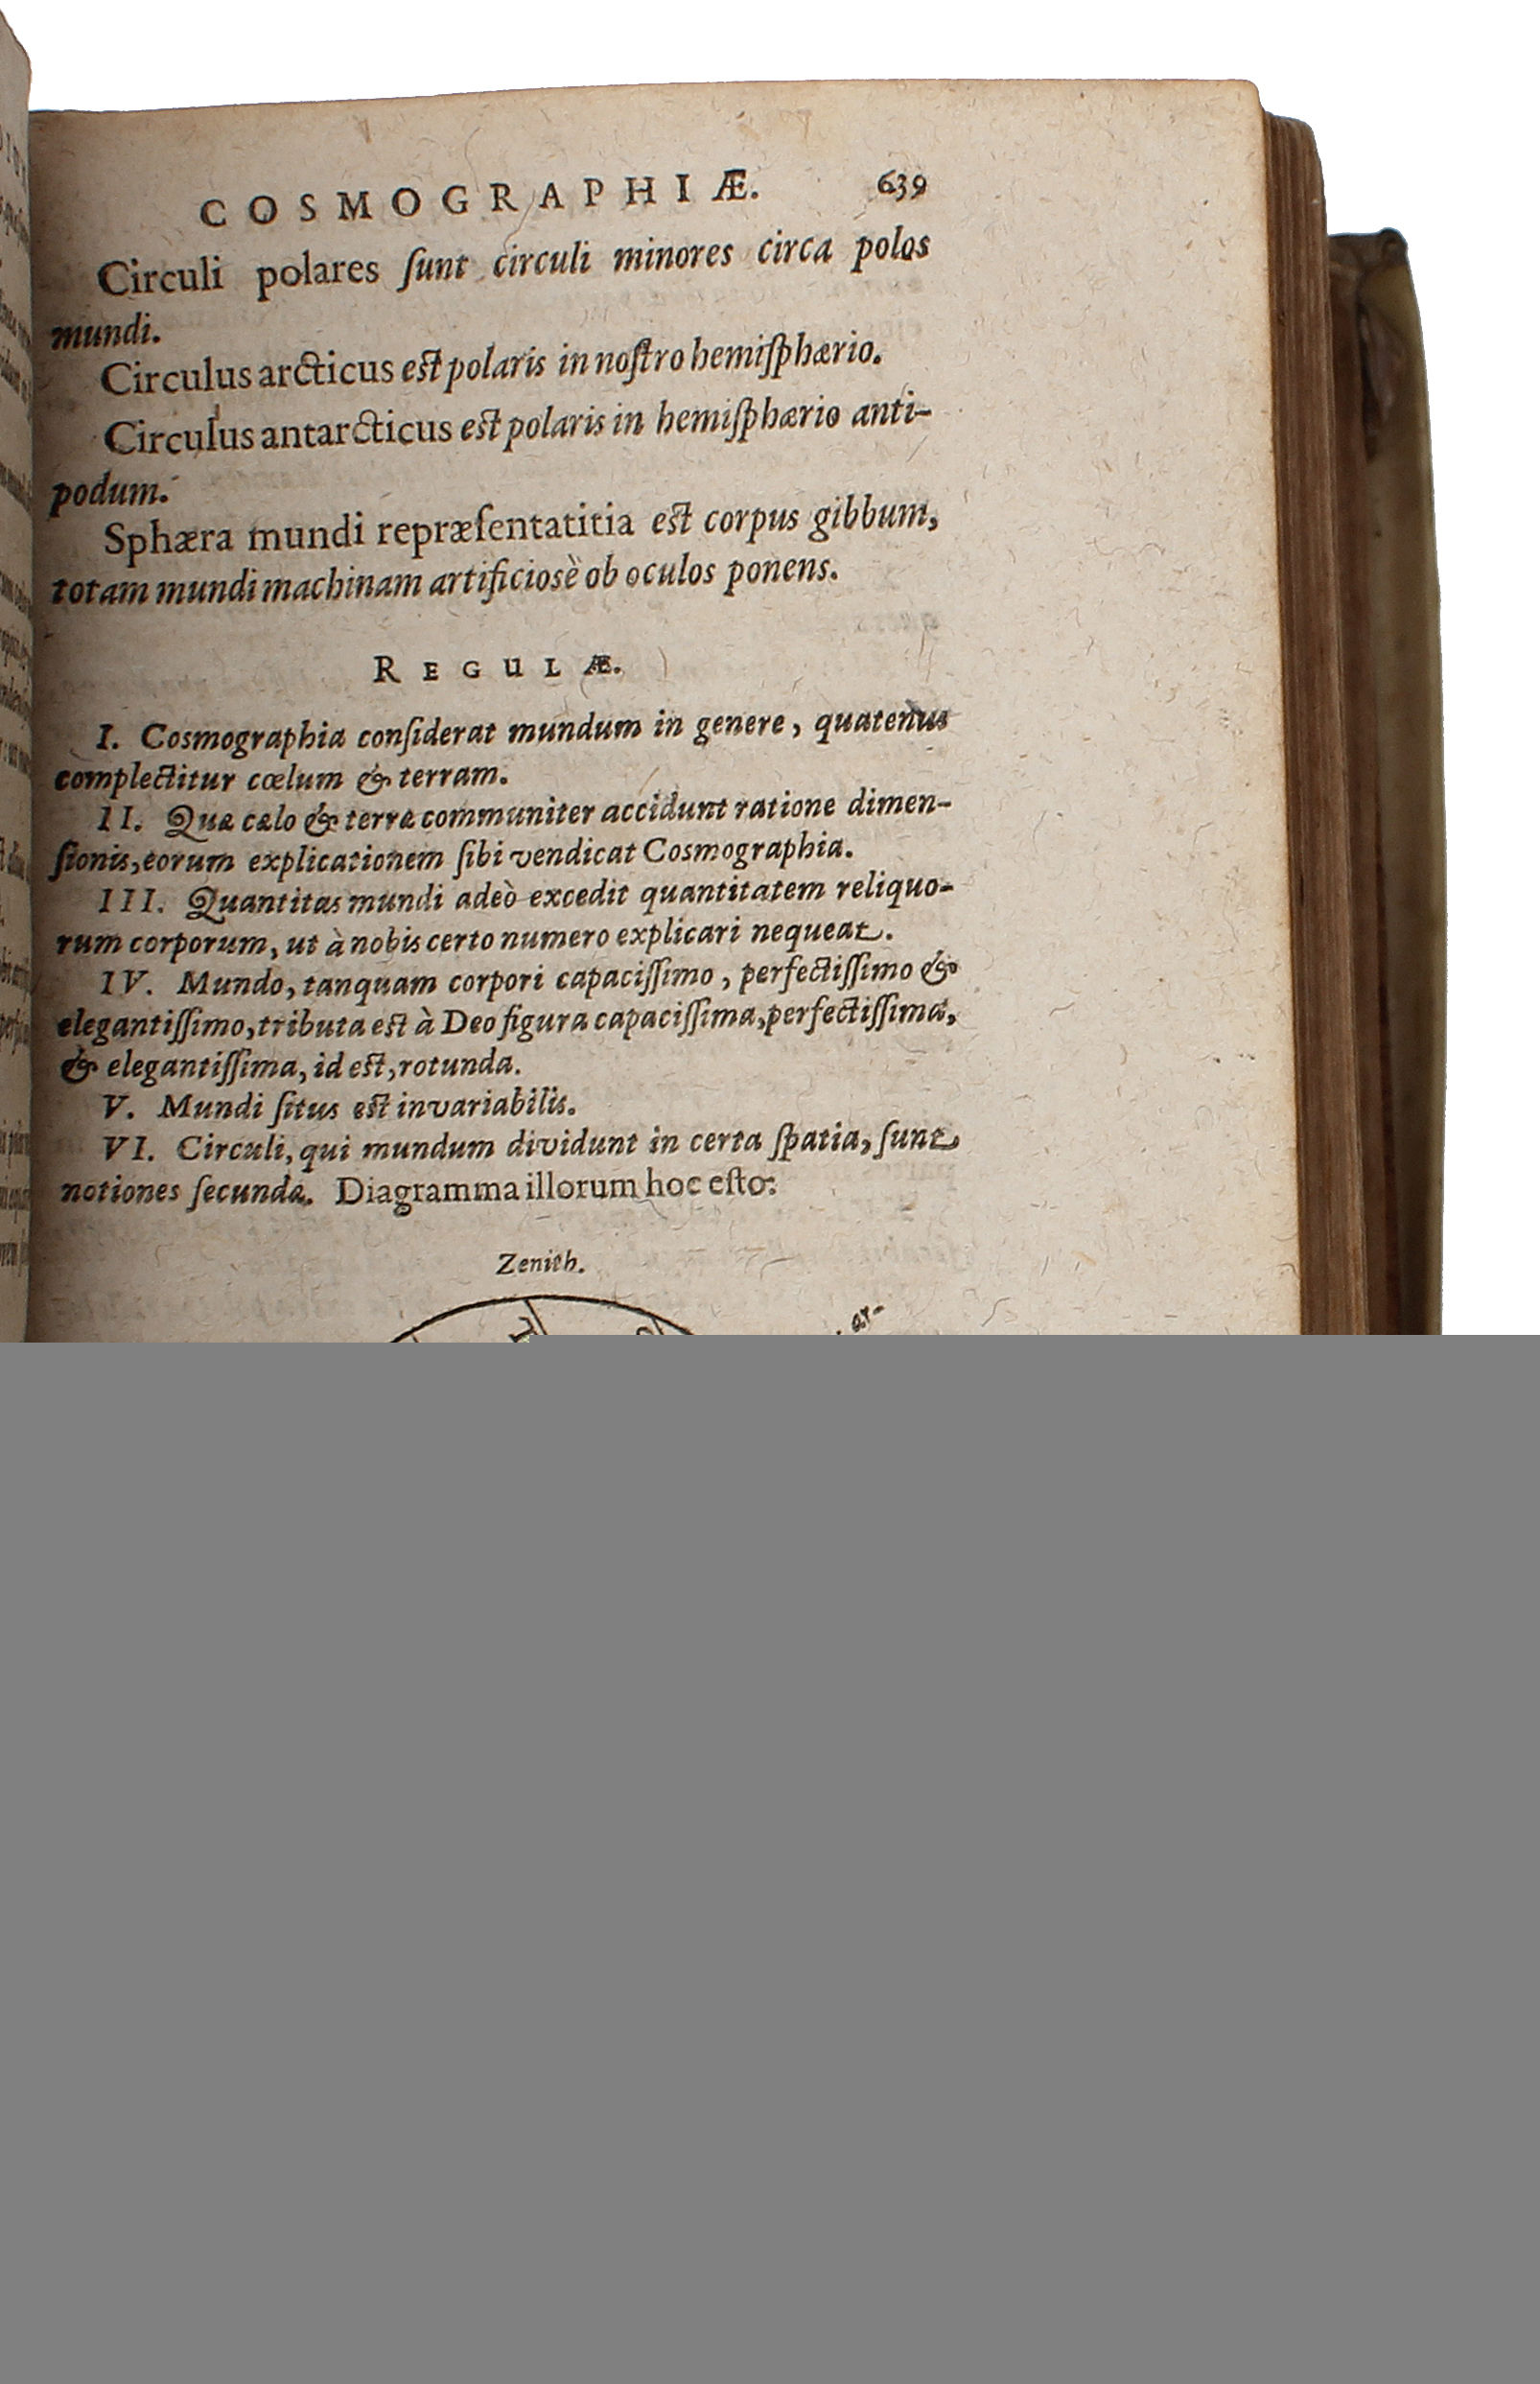 COSMOGRAPHIÆ. 639
Circuli polares ſunt circuli minores circa polos
mundi.
Circulus arcticus est polaris in noſtro hemiſphærio.
Circulus antarcticus est polaris in hemiſphærio anti-
podum.
Sphæra mundi repræſentatitia est corpus gibbum,
totam mundi machinam artificiosè ob oculos ponens.
REGULÆ.
I. Cosmographia conſiderat mundum in genere, quatenus
complectitur cœlum & terram.
II. Quæ cælo & terræ communiter accidunt ratione dimen-
ſionis, eorum explicationem ſibi vendicat Cosmographia.
III. Quantitas mundi adeò excedit quantitatem reliquo-
rum corporum, ut à nobis certo numero explicari nequeat.
IV. Mundo, tanquam corpori capaciſſimo, perfectiſſimo &
elegantiſſimo, tributa est à Deo figura capaciſſima, perfectiſſima,
& elegantiſſima, id est, rotunda.
V. Mundi ſitus est invariabilis.
VI. Circuli, qui mundum dividunt in certa ſpatia, ſunt
notiones ſecundæ. Diagramma illorum hoc eſto:
Zenith.
ar-